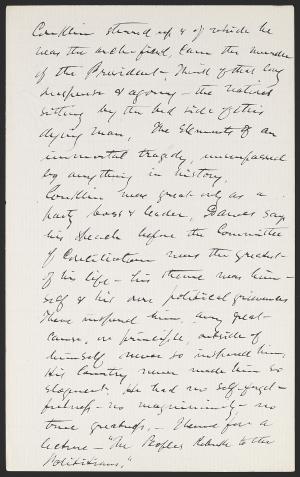 Conklin stirred up & of which he
was the arch-fiend, came the murder
of the President. Think of that long
suspense & agony — the nation
sitting by the bed side of this
dying man. The elements of an
immortal tragedy, unsurpassed
by anything in history.
Conklin was great only as a
party boss & leader, Dawes says
his speech before the Committee
of Conciliation was the greatest
of his life — his theme was him-
self & his own political grievances
These inspired him, any great
cause, or principle, outside of
himself, never so inspired him.
His Country never made him so
eloquent. He had no self-forget-
fulness — no magnanimity — no
true greatness. — Theme for a
lecture — "The Peoples Rebuke to the
Politicians."